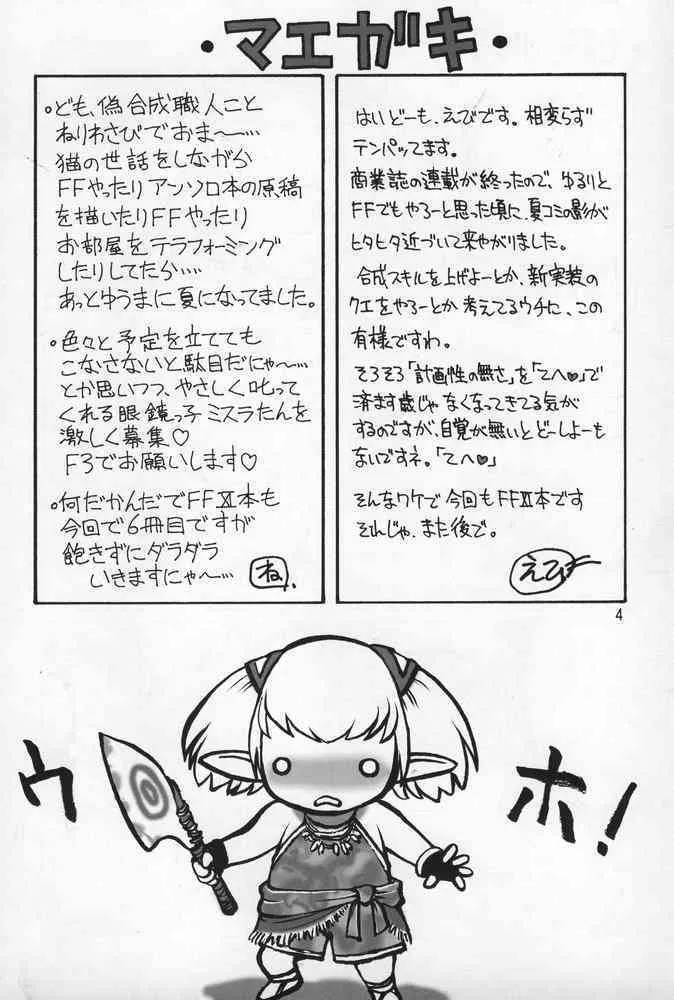 ・マエガキ・
。ども、偽合成職人こと
ねりわさびでおま〜……
猫の世話をしながら
FFやったりアンソロ本の原稿
を描いたりFFやったり
お部屋をテラフォーミング
したりしてたら……
あっとゆうまに夏になってました。
。色々と予定を立てても
こなさないと駄目だにゃ〜…
とか思いつつ、やさしく叱って
くれる眼鏡っ子ミスラたんを
激しく募集♡
F3でお願いします♡
。何だかんだでFFⅪ本も
今回で6冊目ですが
飽きずにダラダラ
いきますにゃ〜…
ね
はいどーも、えびです。相変らず
テンパッてます。
商業誌の連載が終ったので、ゆるりと
FFでもやろーと思った頃に、夏コミの影が
ヒタヒタ近づいて来やがりました。
合成スキルを上げよーとか、新実装の
クエをやろーとか考えてるウチに、この
有様ですわ。
そろそろ「計画性の無さ」を「てへ♡」で
済ます歳じゃなくなってきてる気が
するのですが、自覚が無いとどーしよーも
ないですネ。「てへ♡」
そんなワケで今回もFFⅪ本です
それじゃ、また後で。
えび
4
ウホ!